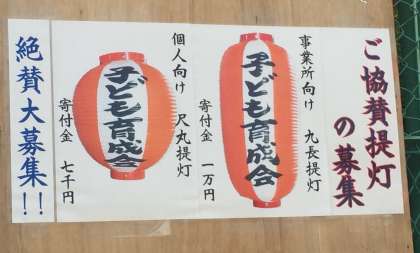 ご協賛提灯
の募集
事業所向け 九長提灯
子ども育成会
寄付金 一万円
個人向け 尺丸提灯
子ども育成会
寄付金 七千円
絶賛大募集!!